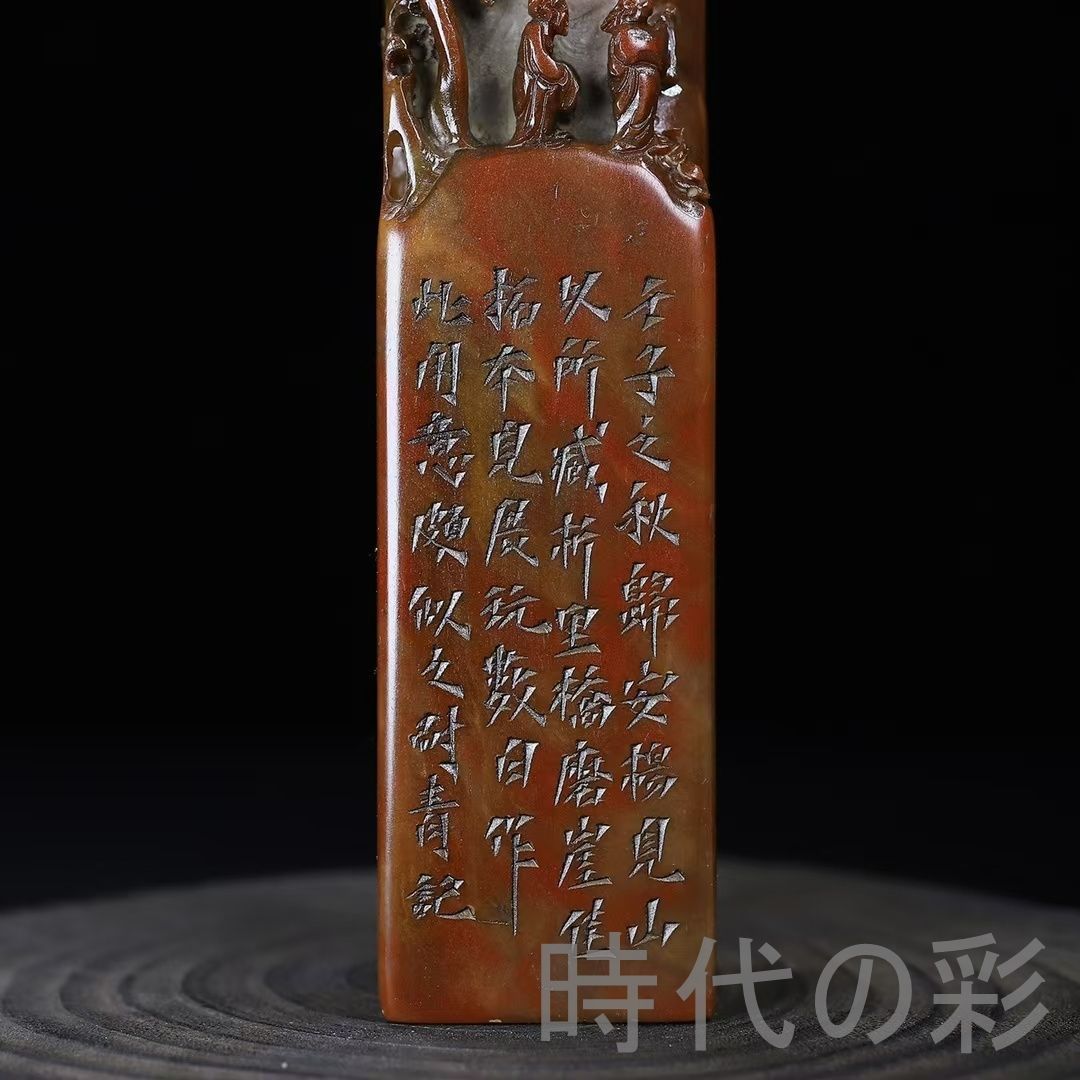 壬子之秋歸安楊見山
以所藏析里橋磨崖佳
拓本見展玩數日作
此用意頗似之耐青記
時代の彩